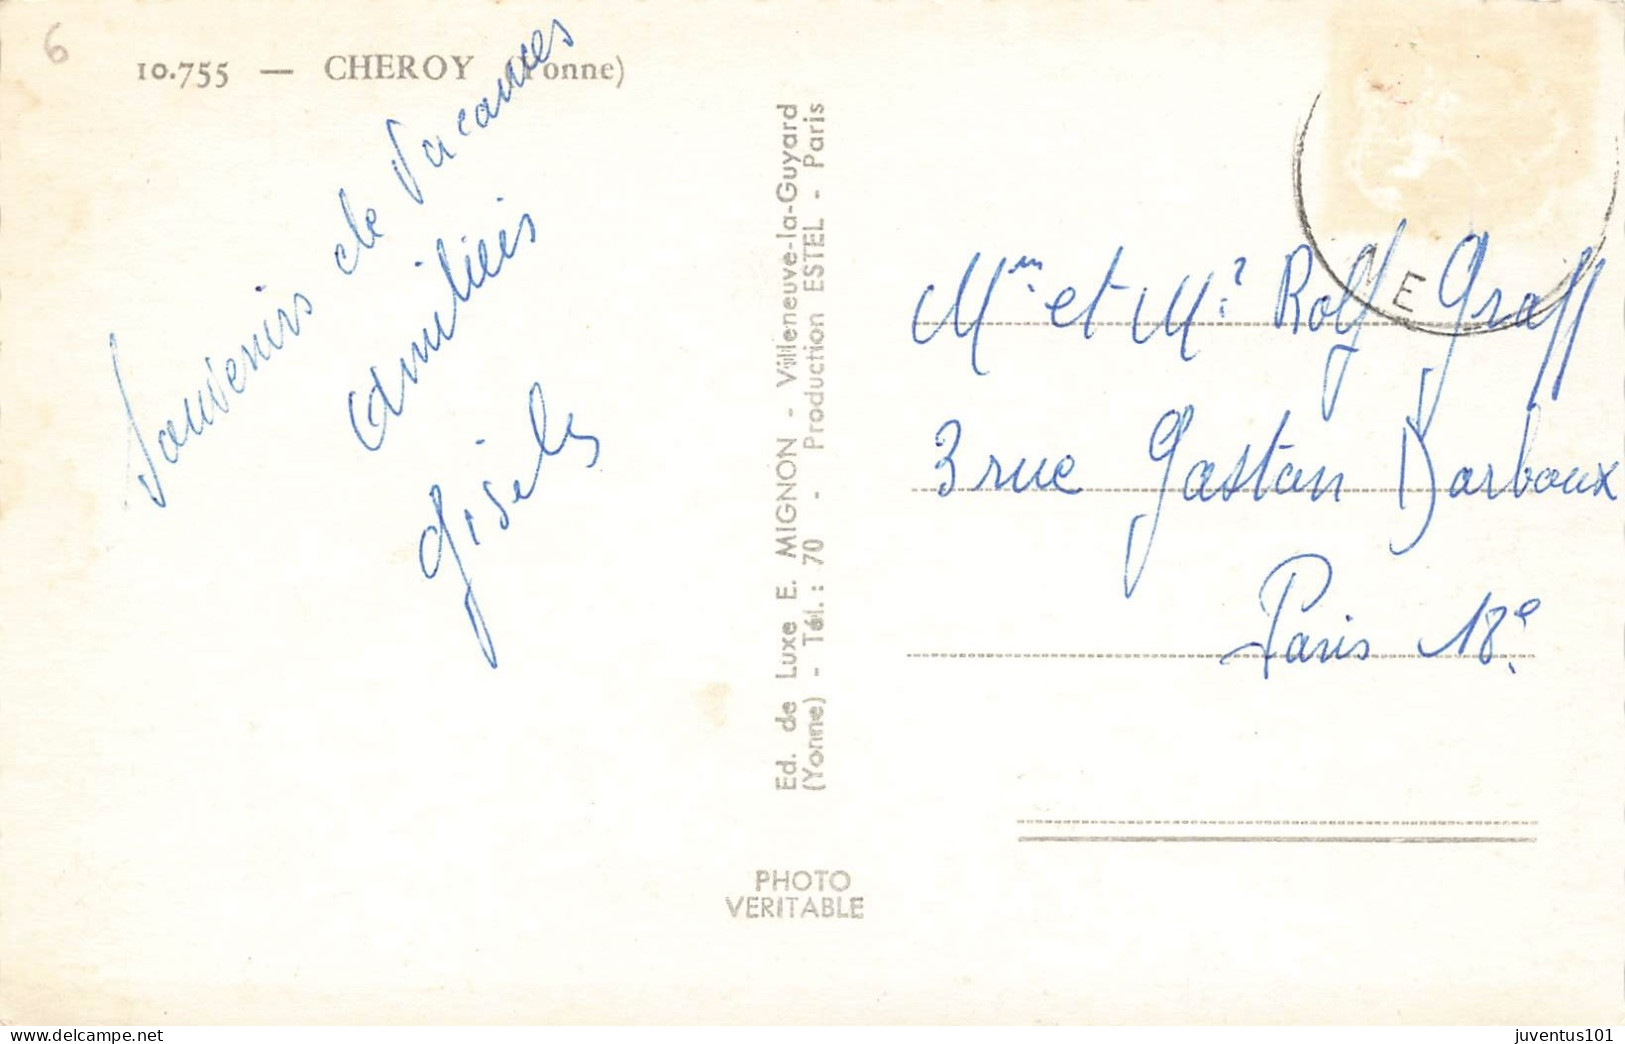 6
10.755 — CHEROY (Yonne)
Souvenirs de Vacances
amitiés
Gisela
Ed. de Luxe E. MIGNON - Villeneuve-la-Guyard
(Yonne) - Tél. : 70 - Production ESTEL - Paris
PHOTO
VERITABLE
NE
Mme et Mr Rolf Graff
3 rue Gaston Darboux
Paris 18e
www.delcampe.net
juventus101